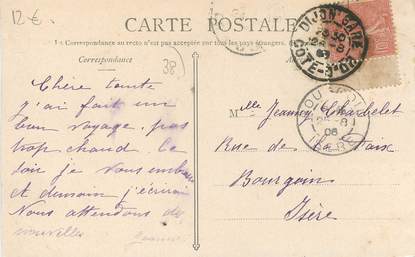 12 €
CARTE POSTALE
La Correspondance au recto n'est pas acceptée par tous les pays étrangers.
Correspondance
38
DIJON-GARE
COTE-D'OR
Chère tante
j'ai fait un
bon voyage, pas
trop chaud. Ce
soir je vous embrasse
et demain j'écrirai
Nous attendons des
nouvelles
Jeanne
Mlle Jeanny Charbelet
Rue de la Paix
Bourgoin
Isère